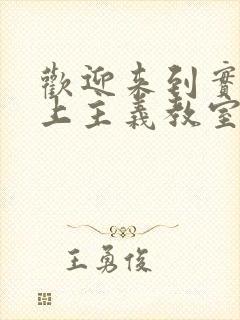 歡迎來到實
上主義教室
王勇俊